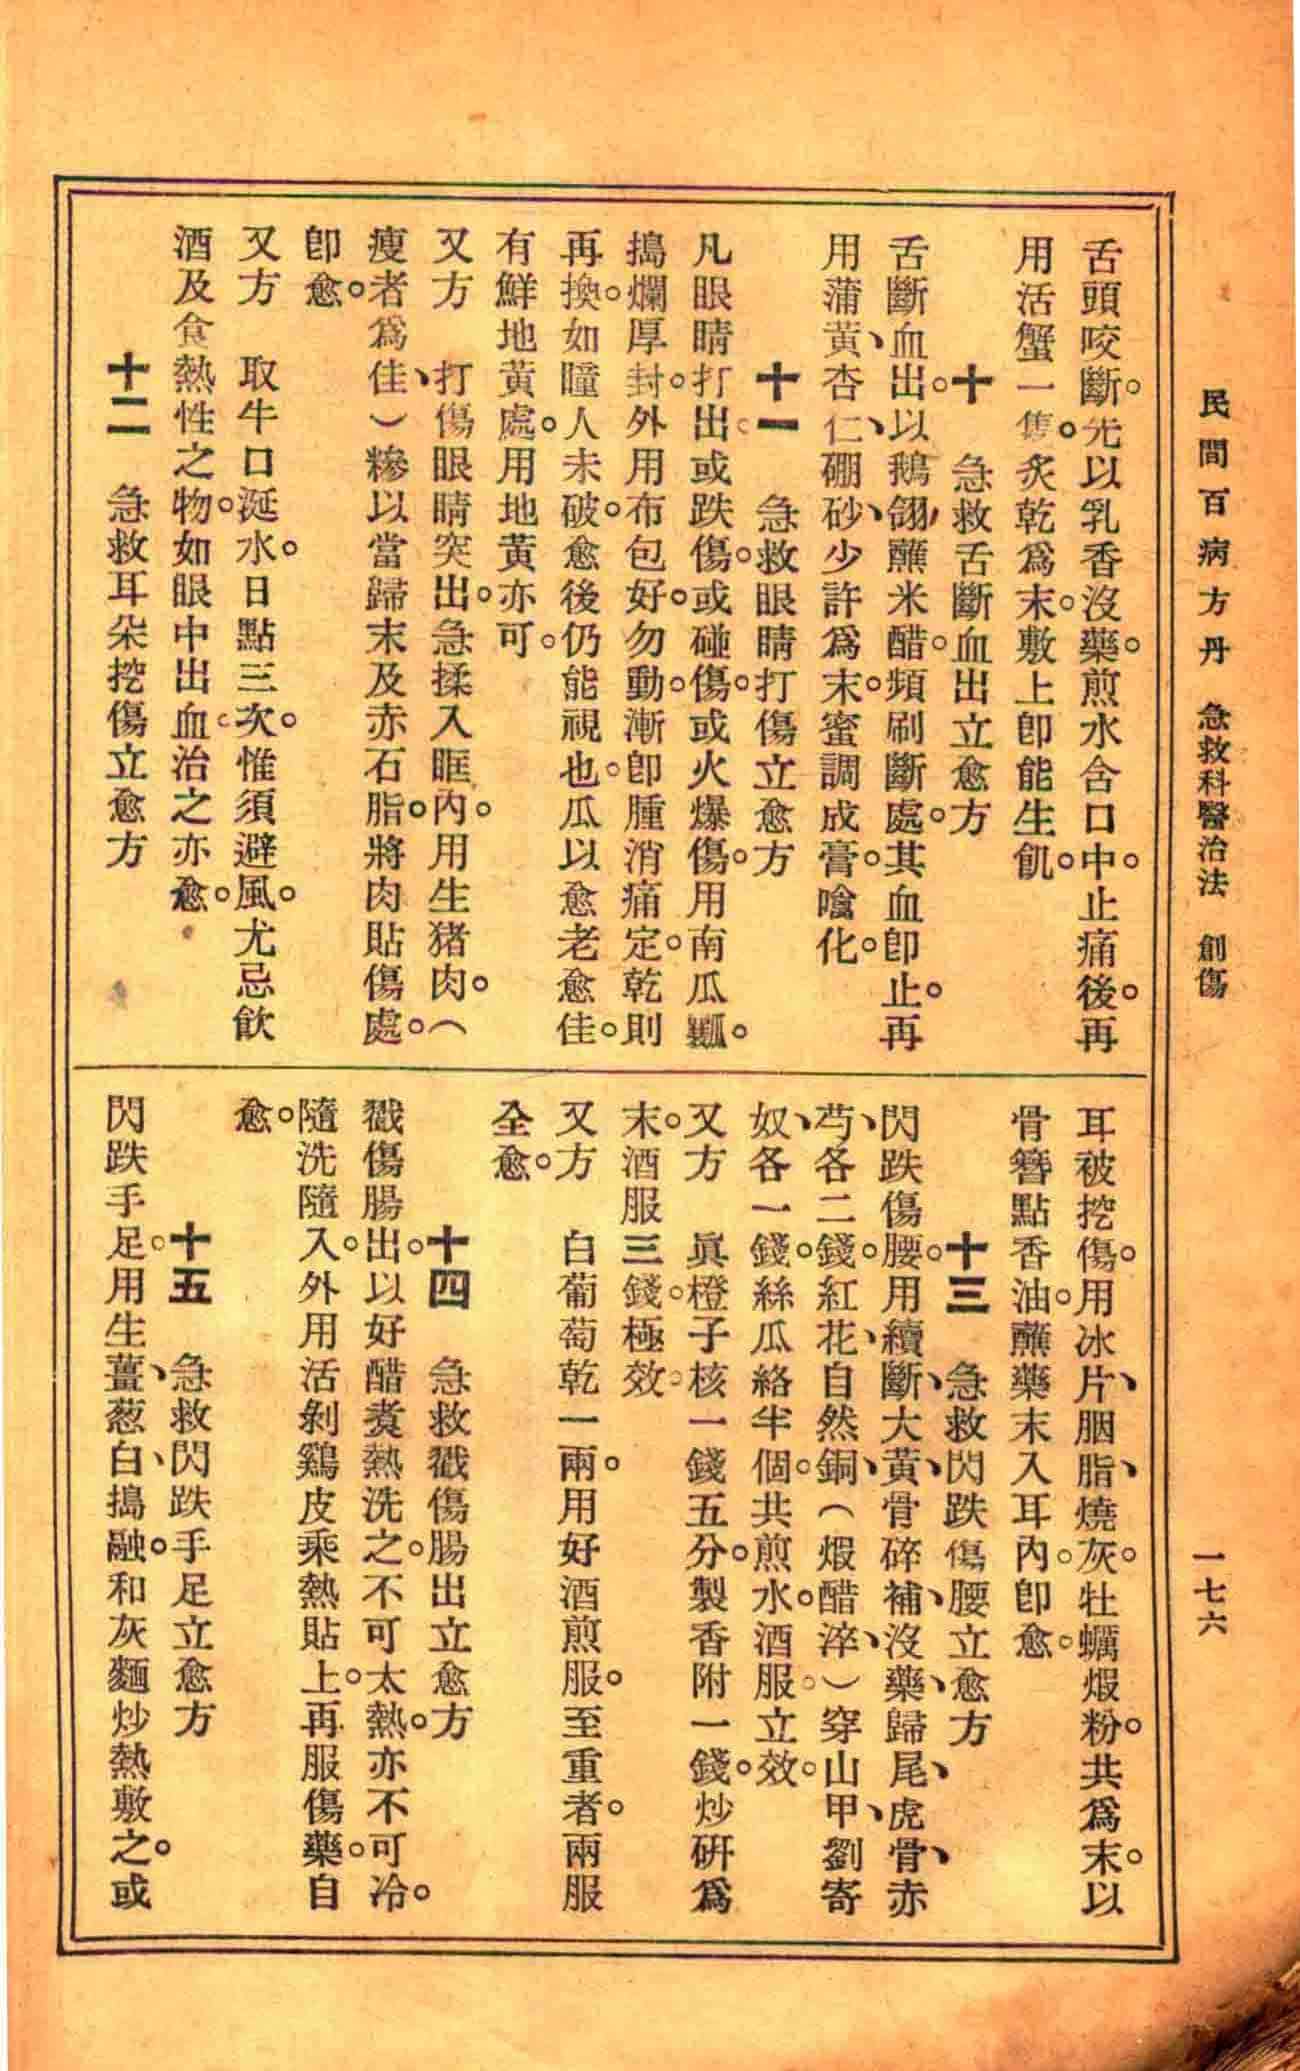 民間百病方丹　急救科醫治法　創傷　一七六
舌頭咬斷。先以乳香沒藥。煎水含口中。止痛後。再
用活蟹一隻。炙乾爲末。敷上卽能生肌。
十　急救舌斷血出立愈方
舌斷血出。以鵝翎蘸米醋。頻刷斷處。其血卽止。再
用蒲黃、杏仁、硼砂、少許爲末。蜜調成膏。噙化。
十一　急救眼睛打傷立愈方
凡眼睛打出。或跌傷。或碰傷。或火爆傷。用南瓜瓤。
搗爛厚封。外用布包好。勿動。漸卽腫消痛定。乾則
再換。如瞳人未破。愈後仍能視也。瓜以愈老愈佳。
有鮮地黃處。用地黃亦可。
又方　打傷眼睛突出。急揉入眶內。用生猪肉。（
瘦者爲佳、）糝以當歸末及赤石脂。將肉貼傷處。
卽愈。
又方　取牛口涎水。日點三次。惟須避風。尤忌飲
酒及食熱性之物。如眼中出血。治之亦愈。
十二　急救耳朵挖傷立愈方
耳被挖傷。用冰片、胭脂、燒灰。牡蠣煆粉。共爲末。以
骨簪點香油。蘸藥末入耳內。卽愈。
十三　急救閃跌傷腰立愈方
閃跌傷腰。用續斷、大黃、骨碎補、沒藥、歸尾、虎骨、赤
芍、各二錢。紅花、自然銅、（煆醋淬、）穿山甲、劉寄
奴、各一錢。絲瓜絡半個。共煎水。酒服。立效。
又方　眞橙子核一錢五分。製香附一錢。炒硏爲
末。酒服三錢。極效。
又方　白葡萄乾一兩。用好酒煎服。至重者。兩服
全愈。
十四　急救戳傷腸出立愈方
戳傷腸出。以好醋煑熱洗之。不可太熱。亦不可冷。
隨洗隨入。外用活剝鷄皮乘熱貼上。再服傷藥。自
愈。
十五　急救閃跌手足立愈方
閃跌手足。用生薑、葱白、搗融。和灰麵炒熱敷之。或